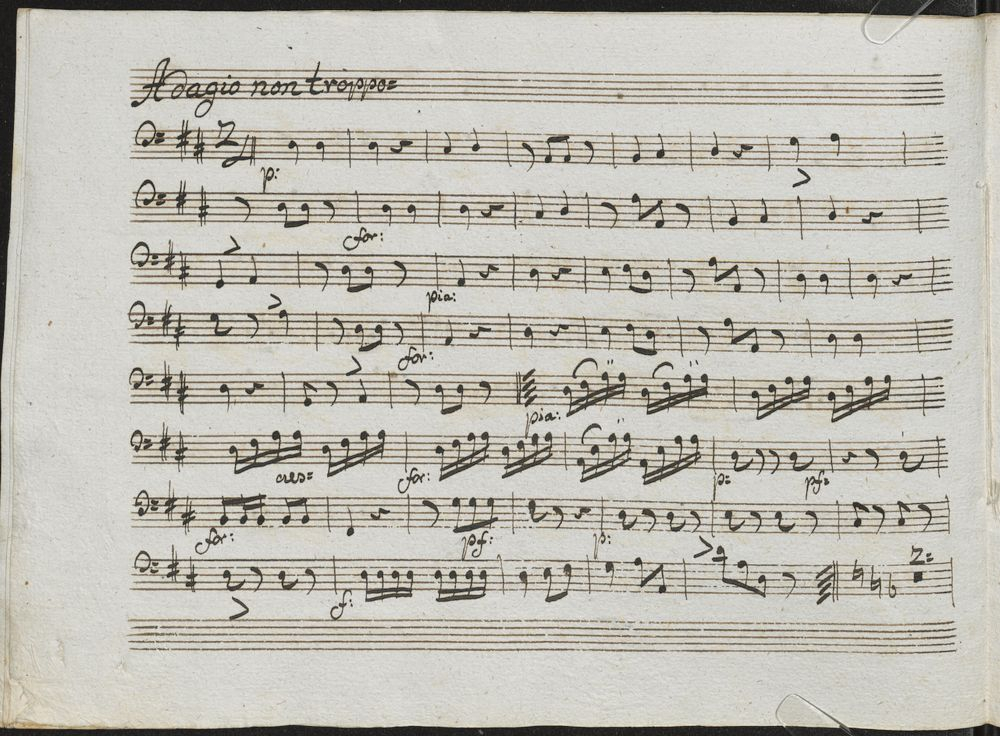 Adagio non troppo=
2/4
p:
for:
pia:
for:
pia:
cres= for: p= pf=
for: pf: p:
f: 2=